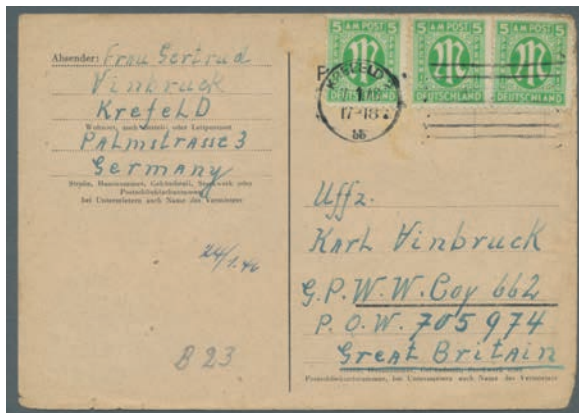 Absender: Frau Gertrud
Vinbruck
Krefeld
Wohnort, auch Zustell- oder Leitpostamt
Palmstrasse 3
Germany
Straße, Hausnummer, Gebäudeteil, Stockwerk oder
Postschließfachnummer
bei Untermietern auch Name des Vermieters
24/1.46
B 23
5 AM POST 5
DEUTSCHLAND
5 AM POST 5
DEUTSCHLAND
5 AM POST 5
DEUTSCHLAND
KREFELD
17-18
bb
Uffz.
Karl Vinbruck
G.P.W.W. Coy 662
P.O.W. 705974
Great Britain
Straße, Hausnummer, Gebäudeteil, Stockwerk oder
Postschließfachnummer, bei Untermietern auch Name des Vermieters